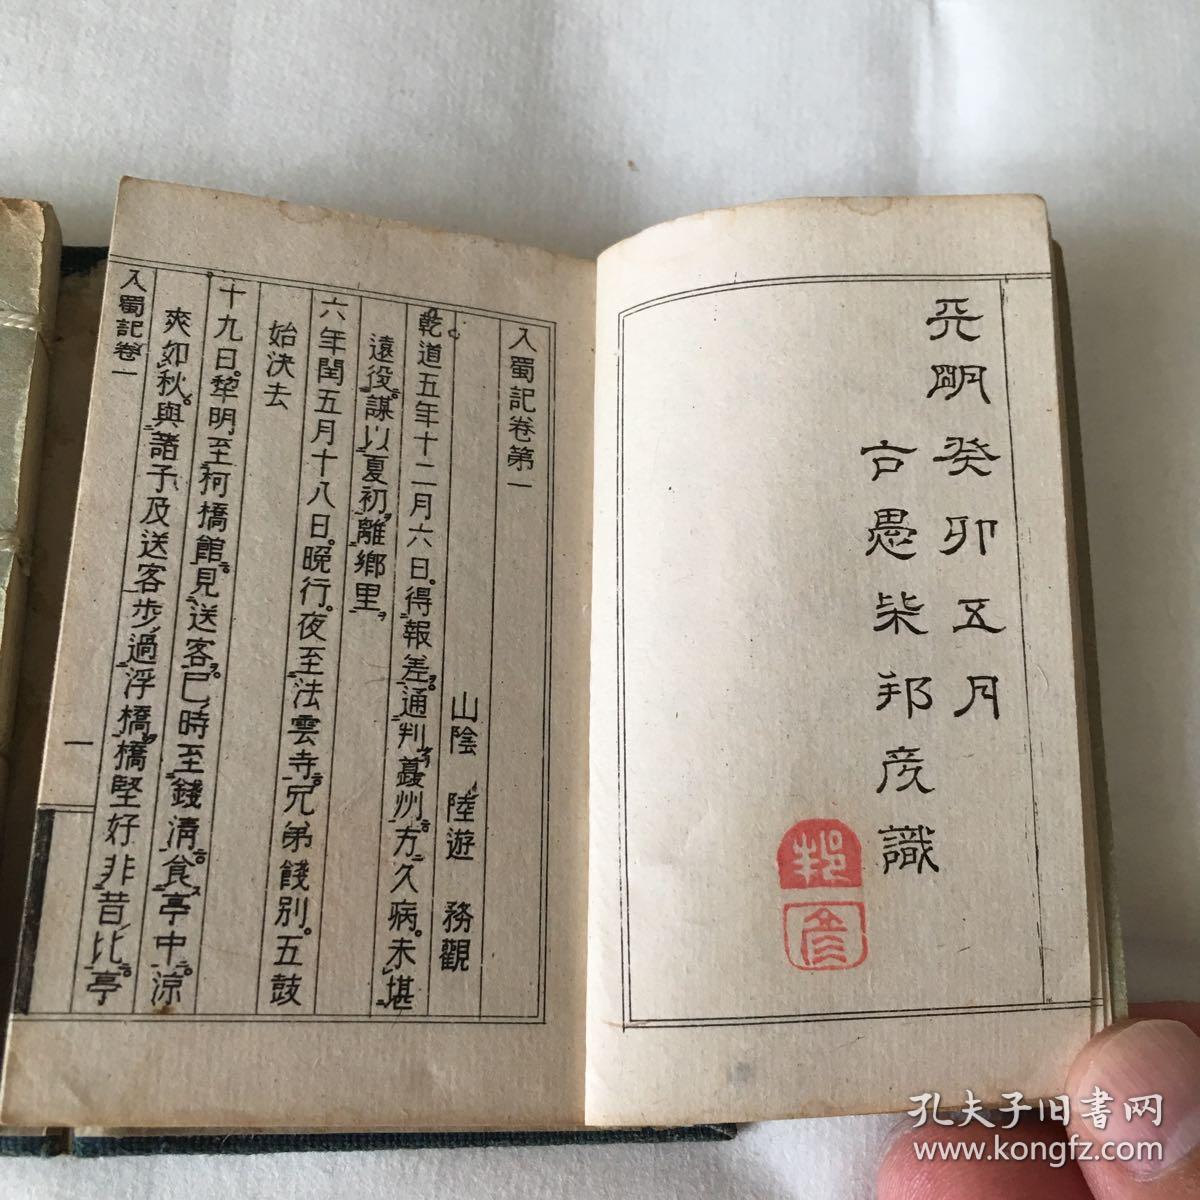 天明癸卯五月
古愚柴邦彦識
邦
彦
入蜀記卷第一
山陰 陸遊 務觀
乾道五年十二月六日。得報差通判夔州方久病。未堪
遠役。謀以夏初離鄉里
六年閏五月十八日。晚行。夜至法雲寺。兄弟餞別。五鼓
始決去
十九日。犂明至柯橋館見送客已時至錢清。食亭中。涼
爽如秋。與諸子及送客步過浮橋。橋堅好非昔比。亭
入蜀記卷一
一
孔夫子旧書网
www.kongfz.com